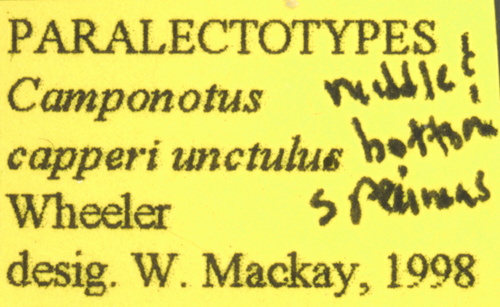 PARALECTOTYPES
Camponotus
capperi unctulus
Wheeler
desig. W. Mackay, 1998
middle &
bottom
specimens